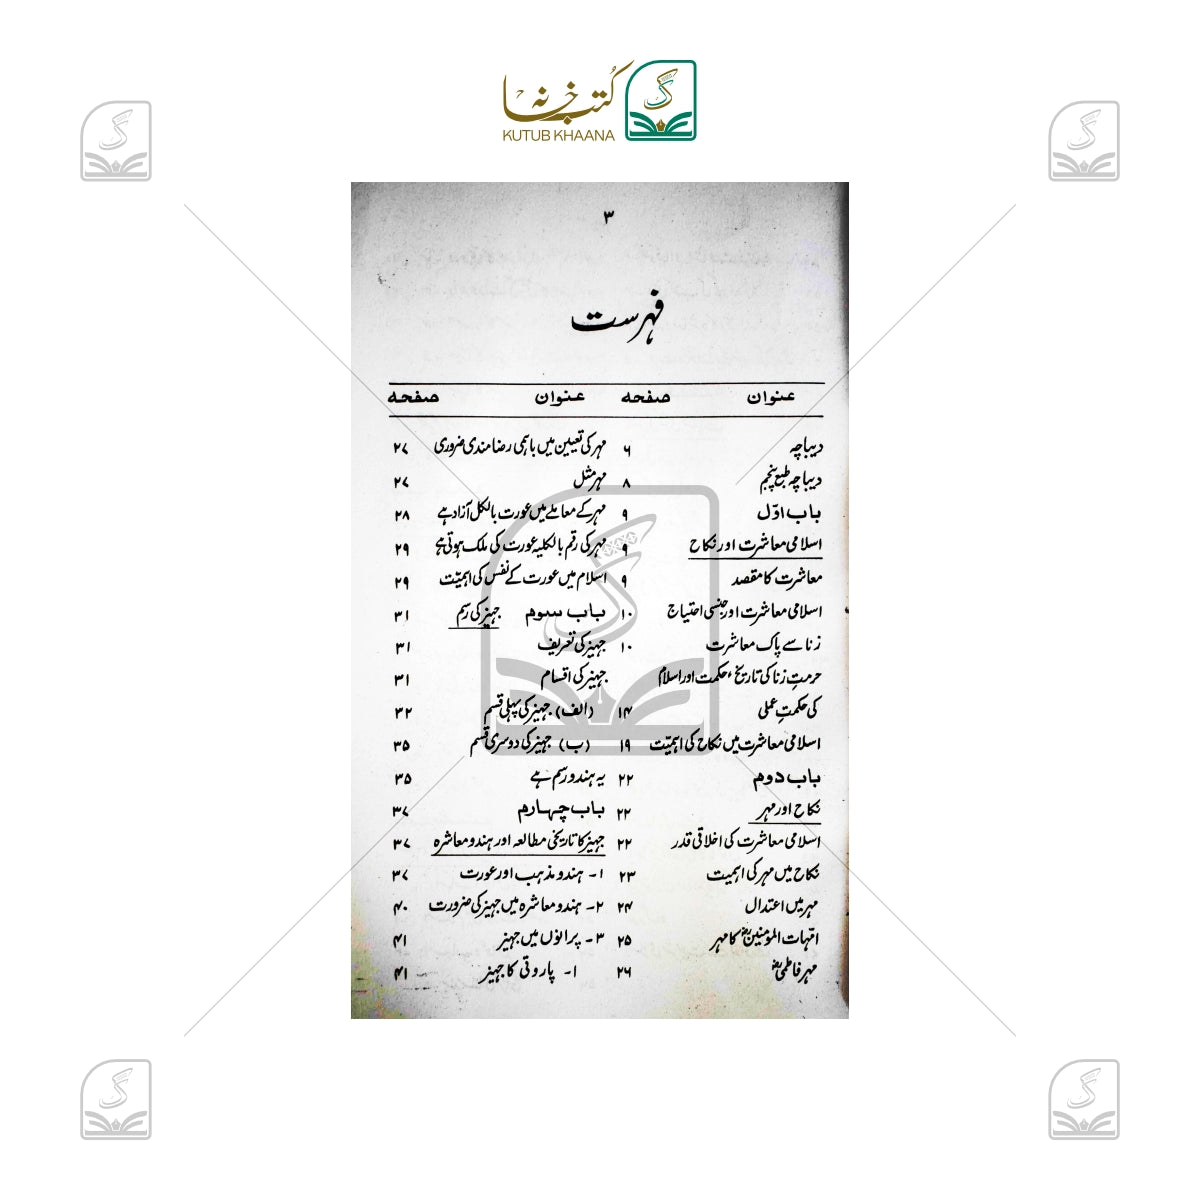 کتب خانہ
KUTUB KHAANA
۳
فہرست
عنوان صفحہ
دیباچہ ۶
دیباچہ طبع پنجم ۸
باب اوّل ۹
اسلامی معاشرت اور نکاح ۹
معاشرت کا مقصد ۹
اسلامی معاشرت اور جنسی احتیاج ۱۰
زنا سے پاک معاشرت ۱۰
حرمتِ زنا کی تاریخ، حکمت اور اسلام
کی حکمتِ عملی ۱۴
اسلامی معاشرت میں نکاح کی اہمیّت ۱۹
باب دوم ۲۲
نکاح اور مہر ۲۲
اسلامی معاشرت کی اخلاقی قدر ۲۲
نکاح میں مہر کی اہمیت ۲۳
مہر میں اعتدال ۲۴
امّہات المومنینؓ کا مہر ۲۵
مہر فاطمیؓ ۲۶
عنوان صفحہ
مہر کی تعیین میں باہمی رضامندی ضروری ۲۷
مہر مثل ۲۷
مہر کے معاملے میں عورت بالکل آزاد ہے ۲۸
مہر کی رقم بالکلیہ عورت کی ملک ہوتی ہے ۲۹
اسلام میں عورت کے نفس کی اہمیّت ۲۹
باب سوم جہیز کی رسم ۳۱
جہیز کی تعریف ۳۱
جہیز کی اقسام ۳۱
(الف) جہیز کی پہلی قسم ۳۲
(ب) جہیز کی دوسری قسم ۳۵
یہ ہندو رسم ہے ۳۵
باب چہارم ۳۷
جہیز کا تاریخی مطالعہ اور ہندو معاشرہ ۳۷
۱- ہندو مذہب اور عورت ۳۷
۲- ہندو معاشرہ میں جہیز کی ضرورت ۴۰
۳- پرانوں میں جہیز ۴۱
۱- پاروتی کا جہیز ۴۱